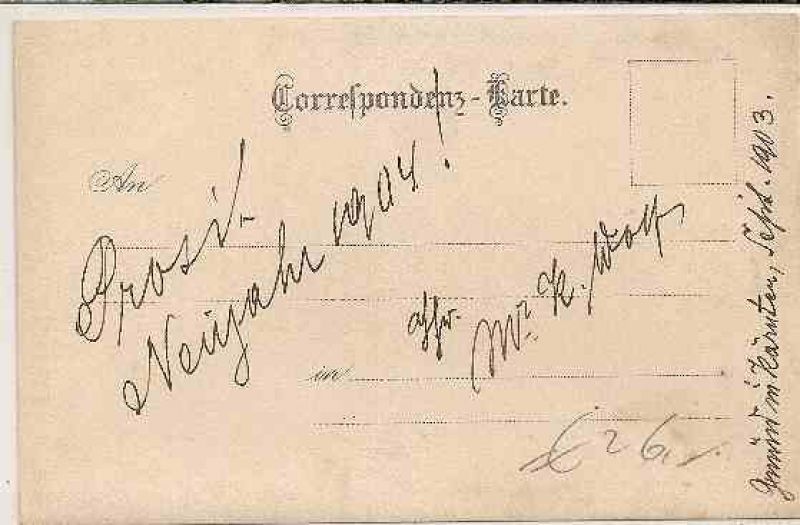 Correspondenz-Karte.
An
Prosit
Neujahr 1904!
K. Wolf
in
£ 26.-
Gmünd in Kärnten, Sept. 1903.